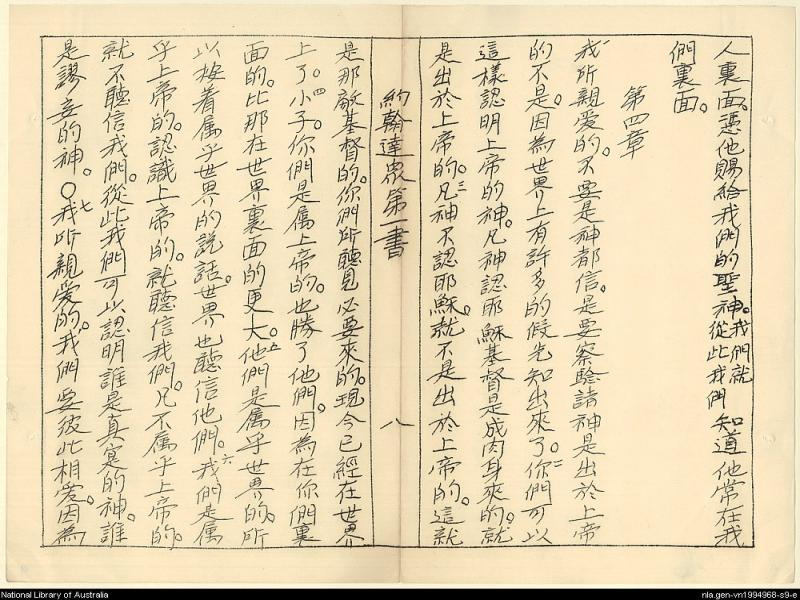 人裏面。憑他賜給我們的聖神。我們就從此我們知道他常在我
們裏面。
第四章
我所親愛的。不要是神都信。是要察驗諸神是出於上帝
的不是。因為世界上有許多的假先知出來了。二你們可以
這樣認明上帝的神。凡神認耶穌基督是成肉身來的。就
是出於上帝的。三凡神不認耶穌。就不是出於上帝的。這就
約翰達眾第一書
八
是那敵基督的。你們所聽見必要來的。現今已經在世界
上了。四小子。你們是屬上帝的。也勝了他們。因為在你們裏
面的。比那在世界裏面的更大。五他們是属乎世界的。所
以按着属乎世界的説話。世界也聽信他們。六我們是属
乎上帝的。認識上帝的。就聽信我們。凡不属乎上帝的。
就不聽信我們。從此我們可以認明誰是真寔的神。誰
是謬妄的神。○七我所親愛的。我們要彼此相愛。因為
National Library of Australia
nla.gen-vn1994968-s9-e